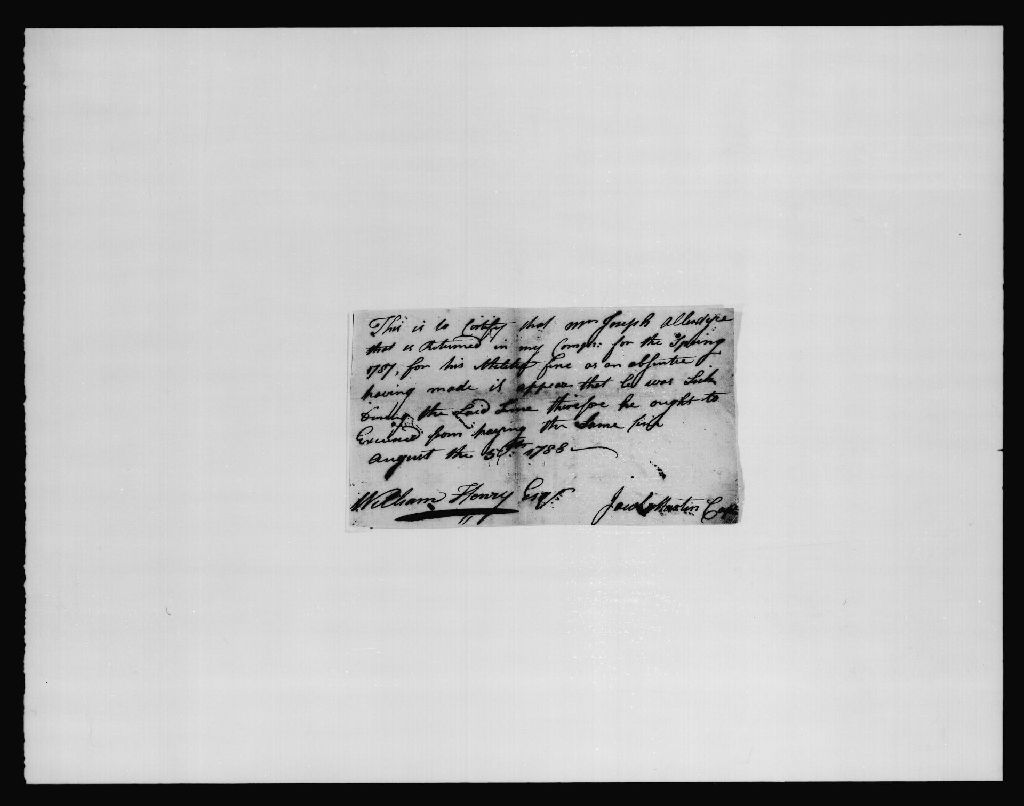 This is to Certify that Mr Joseph Allendyre
that is Returned in my Compy: for the Spring
1787, for his fine as an absintee
having made it appear that he was Sick
During the Said time therefore he ought to
Excused from paying the Same
August the 1788
William Henry Esqr.
Jacob Martin Capt